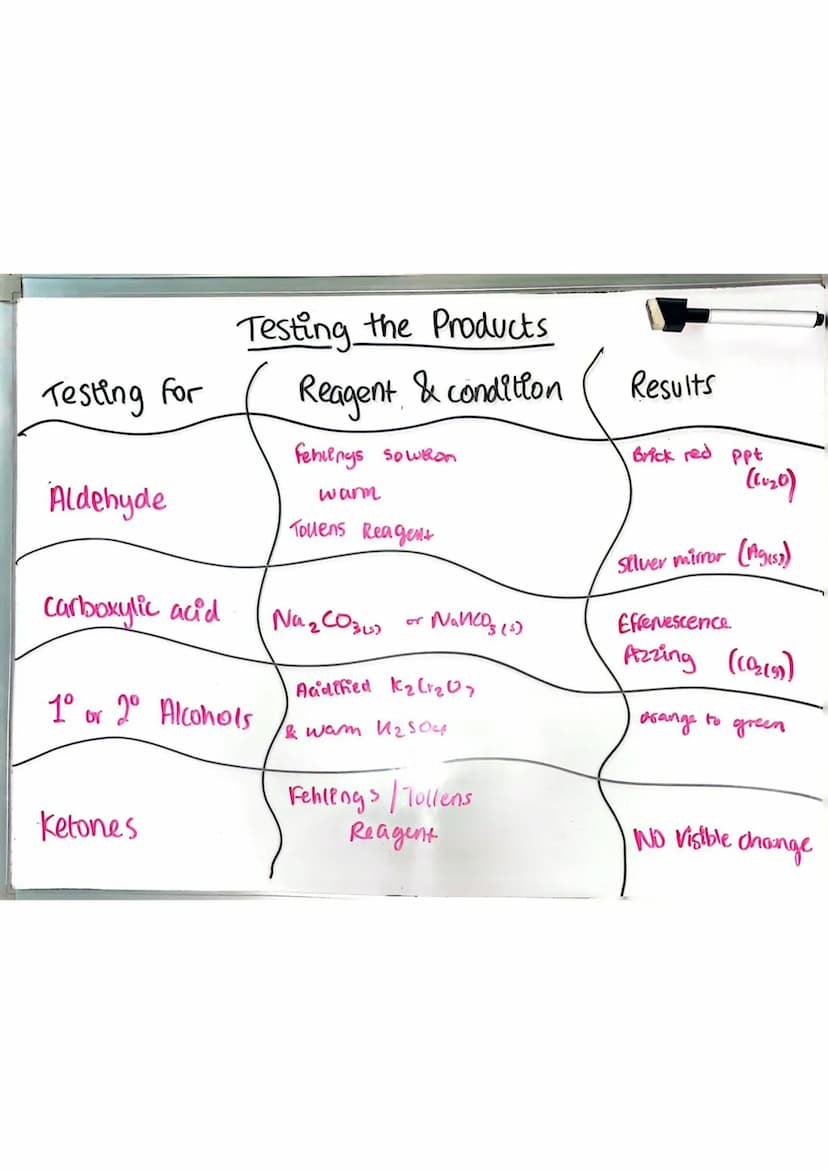 Testing the Products
Testing for
Reagent & condition
Results
Aldehyde
Fehlings solution
warm
Tollens Reagent
Brick red ppt
(Cu2O)
Silver mirror (Ag(s))
Carboxylic acid
Na2CO3(s) or NaHCO3(s)
Effervescence
fizzing (CO2(g))
1° or 2° Alcohols
Acidified K2Cr2O7
& warm H2SO4
orange to green
Ketones
Fehlings / Tollens
Reagent
NO visible change